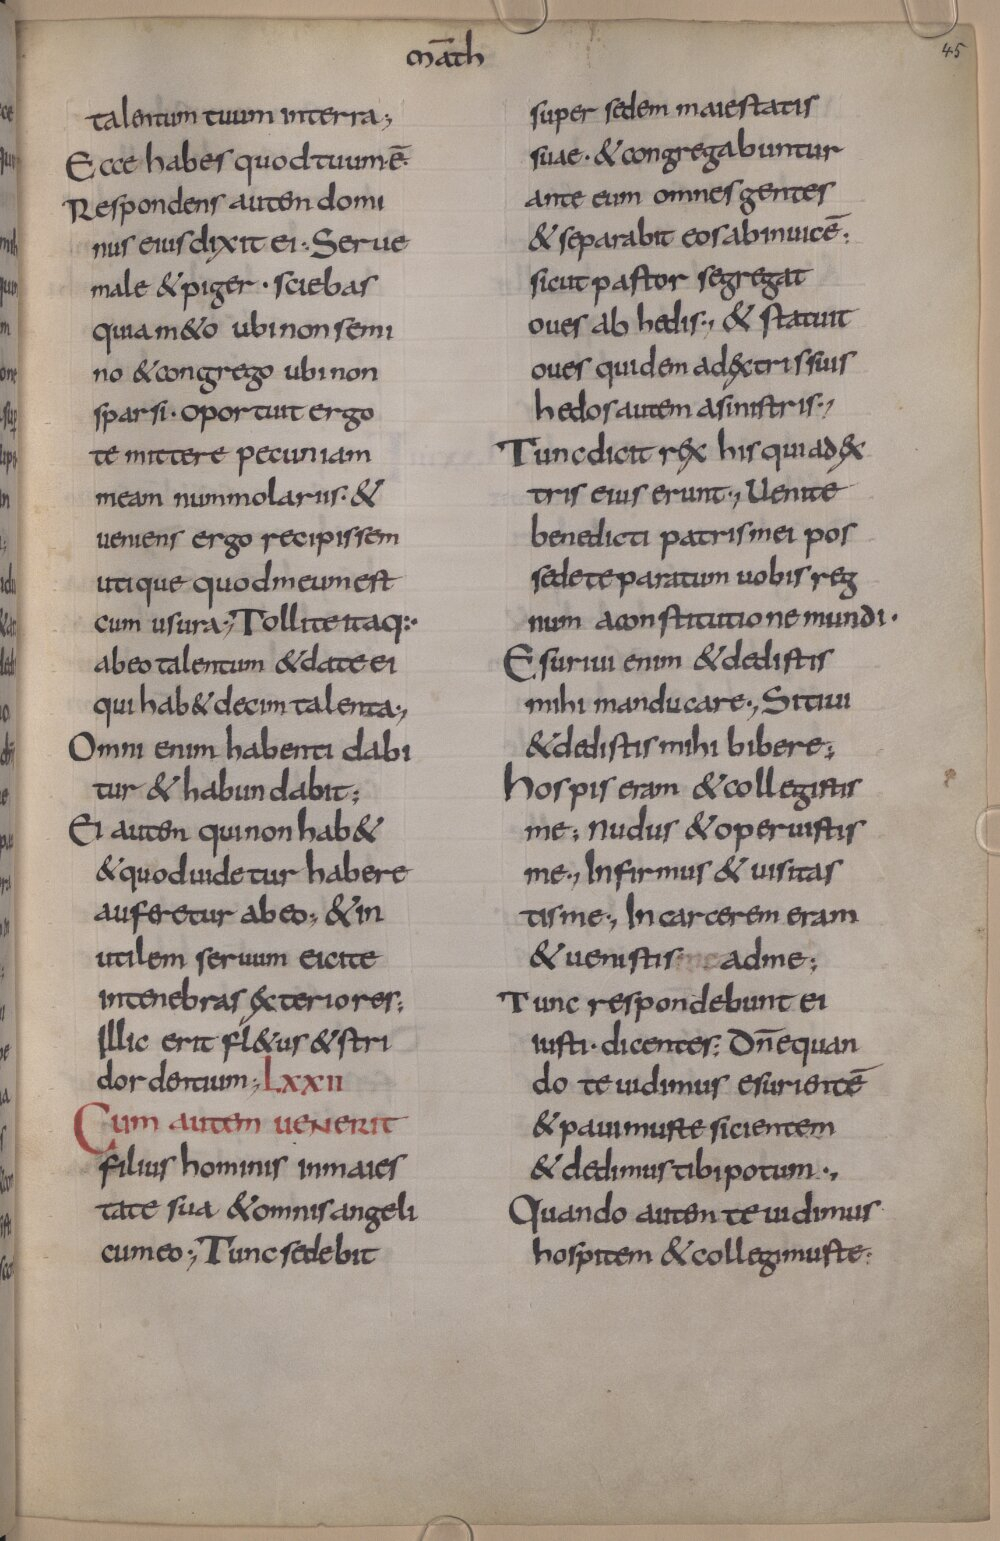 Māth
45
talentum tuum interra;
Ecce habes quod tuum ē.
Respondens autem domi
nus eius dixit ei; Serue
male & piger · sciebas
quia m&o ubi non semi
no & congrego ubi non
sparsi · oportuit ergo
te mittere pecuniam
meam nummolariis · &
ueniens ergo recipissem
utique quod meum est
cum usura; Tollite itaq:
ab eo talentum & date ei
qui hab& decim talenta;
Omni enim habenti dabi
tur & habundabit;
Ei autem qui non hab&
& quod uidetur habere
auferetur ab eo; & in
utilem seruum eicite
in tenebras exteriores;
Illic erit fl&us & stri
dor dentium; LXXII
Cum autem uenerit
filius hominis in maies
tate sua & omnis angeli
cum eo; Tunc sedebit
super sedem maiestatis
suae · & congregabuntur
ante eum omnes gentes
& separabit eos ab inuicē;
sicut pastor segregat
oues ab hedis; & statuit
oues quidem adextris suis
hedos autem a sinistris;
Tunc dicit rex his qui adex
tris eius erunt; Uenite
benedicti patris mei pos
sedete paratum uobis reg
num a constitutione mundi ·
Esuriui enim & dedistis
mihi manducare; Sitiui
& dedistis mihi bibere;
hospis eram & collegistis
me; nudus & operuistis
me; Infirmus & uisitas
tis me; In carcerem eram
& uenistis ad me;
Tunc respondebunt ei
iusti · dicentes; Dn̄e quan
do te uidimus esurientē
& pauimus te sicientem
& dedimus tibi potum;
Quando autem te uidimus
hospitem & collegimus te;